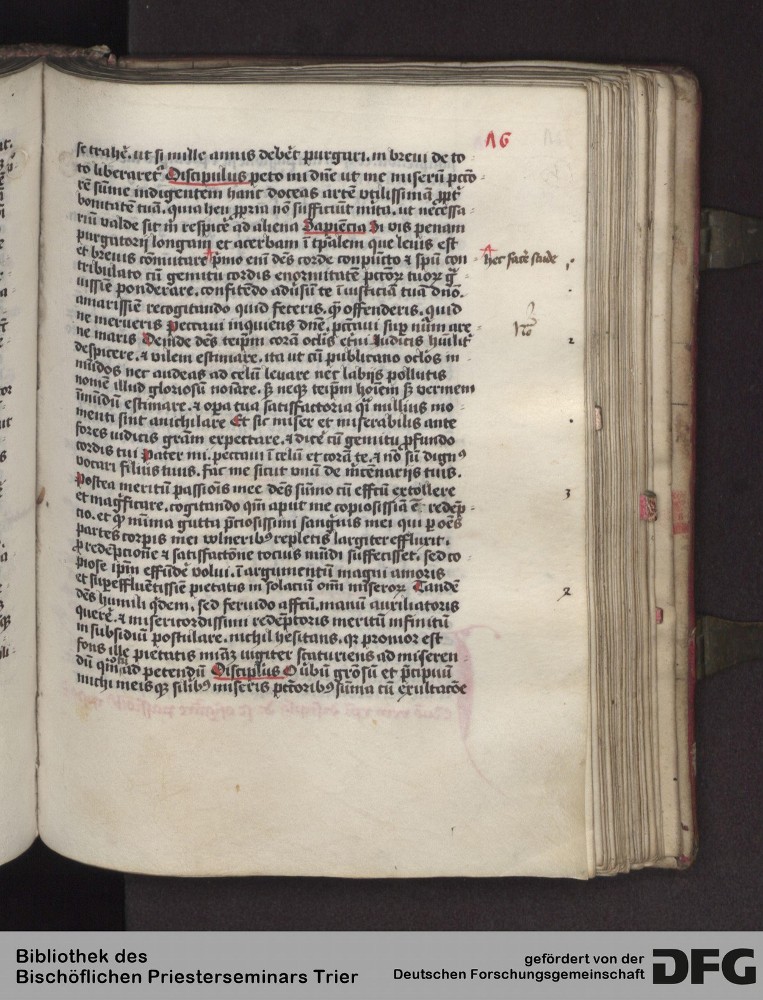 16
se trahe᷑. ut si mille annis debe᷑t purgari. in breui de to
to liberaret᷑ Discipulus peto mi dn̄e ut me miserū pctō
rē sūme indigentem hanc doceas artē vtilissimā ꝓpt᷑
bonitatē tuā. quia heu ꝓpria nō sufficiūt mīta. ut necessa
riū valde sit m̄ respice᷑ ad aliena Sapiēncia Si vis penam
purgatorij longam et acerbam ī tp̄alem que leuis est
et breuis cōmutare pīmo em̄ dēs corde conpūcto ⁊ spū con
tribulato cū gemitu cordis enormitatē pctōꝝ tuoꝝ
uissie ponderare. confitēdo aduʾsū te īiusticiā tuā dn̄o.
amarissiē recogitando quid feceris. qʾ offenderis. quid
ne merueris Peccaui inquiens dn̄e. pctāui suꝑ nūm are
ne maris Deinde dēs teip̄m corā oclīs et̄ni Iudicis hūilit᷑
despicere. ⁊ vilem estimare. ita ut cū publicano oclōs in
mūdos nec audeas ad celū leuare nec labijs pollutis
nomē illud gloriosū noīare. sʒ neqʒ teip̄m hoīem sʒ vermem
īmūdū estimare. ⁊ opa tua satisfactoria qʾ nullius mo
menti sint anichilare Et sic miser et miserabilis ante
fores iudicis gram̄ expectare. ⁊ dice᷑ cū gemitu ꝓfundo
cordis tui Pater mi. peccaui ī celū et corā te. ⁊ nō sū dignꝰ
vocari filius tuus. fac me sicut vnū de mc̄ennarijs tuis.
Postea meritū passiōis mee dēs sūmo cū effctū extollere
et magʾficare. cogitando qm̄ aput me copiosissīa ē redēp
cio. et qʾ mīma gutta pʾciosissimi sanguīs mei qui ꝑ oēs
partes corꝑis mei wlneribꝰ repletis largiter effluxit.
ꝓ redēpcione ⁊ satisfactōne tocius mūdi suffecisset. sed co
piose ip̄m effūde᷑ volui. ī argumentū magni amoris
et suꝑeffluētissiē pietatis in solaciū om̄ miseroꝝ Tandē
dēs humili qʾdem. sed feruido affctū. manū auxiliatoris
quere᷑. ⁊ misericordissimi redēptoris meritū infinitū
in subsidiū postulare. nichil hesitans. qʾ pronior est
fons ille pietatis miāꝝ iugiter scaturiens ad miseren
dū qm̄ ad petendū Discipl̄us O vbiū grōsū et pʾcipuū
michi meisqʒ silibꝰ miseris pctōribꝰ sūma cū exultacōe
hec face᷑ stude
1
2
3
Bibliothek des
Bischöflichen Priesterseminars Trier
gefördert von der
Deutschen Forschungsgemeinschaft
DFG